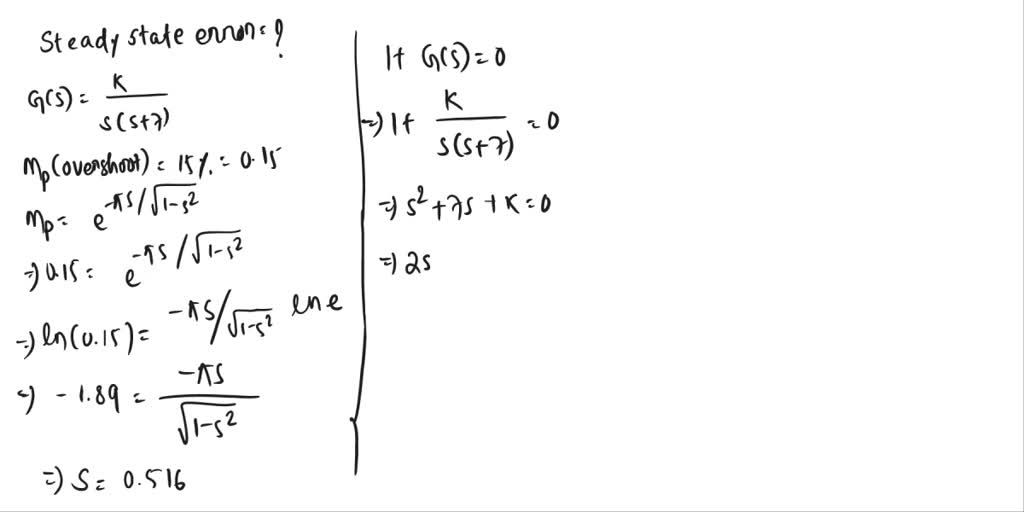 Steady state error = ?
G(s) = K / s(s+7)
Mp(overshoot) = 15%. = 0.15
Mp = e^-πs/√1-s²
=> 0.15 = e^-πs/√1-s²
=> ln(0.15) = -πs/√1-s² ln e
=> -1.89 = -πs / √1-s²
=> s = 0.516
1+ G(s) = 0
=> 1+ K / s(s+7) = 0
=> s² + 7s + K = 0
=> 2s